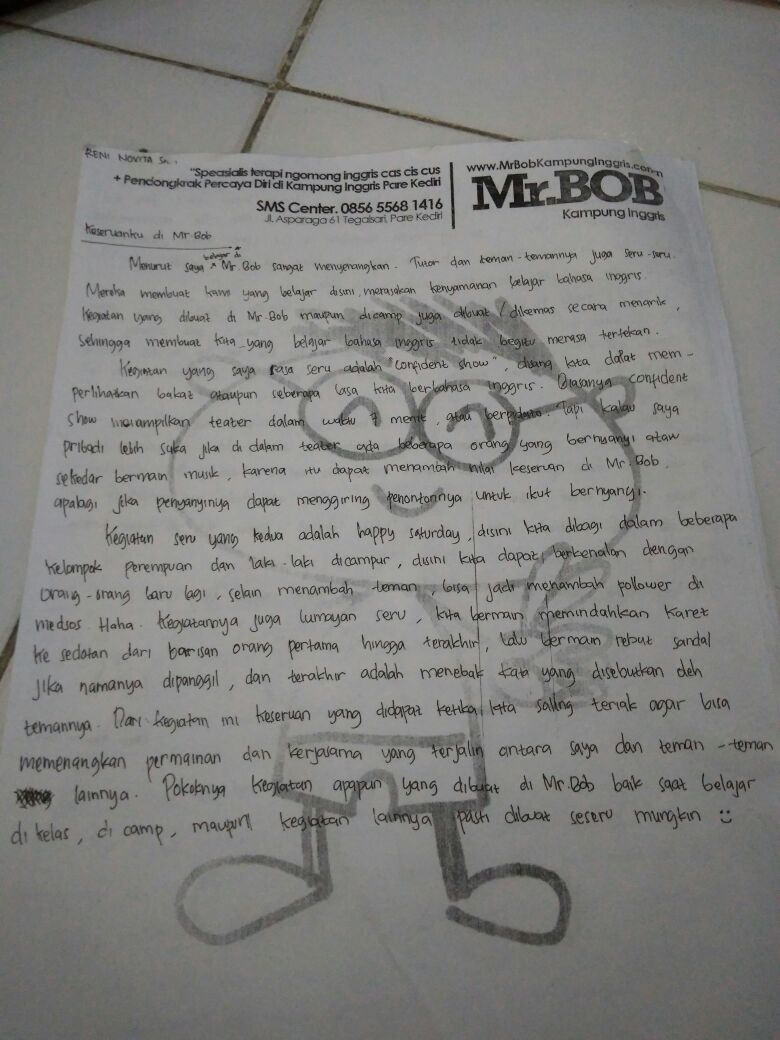 RENI NOVITA Sa.
"Speasialis terapi ngomong inggris cas cis cus
+ Pendongkrak Percaya Diri di Kampung Inggris Pare Kediri
SMS Center. 0856 5568 1416
Jl. Asparaga 61 Tegalsari, Pare Kediri
www.MrBobKampungInggris.com
Mr.BOB
Kampung Inggris
Keseruanku di Mr.Bob
Menurut saya belajar di Mr.Bob sangat menyenangkan. Tutor dan teman-temannya juga seru-seru.
Mereka membuat kami yang belajar disini, merasakan kenyamanan belajar bahasa inggris.
Kegiatan yang dibuat di Mr.Bob maupun dicamp juga dibuat / dikemas secara menarik,
Sehingga membuat kita yang belajar bahasa inggris tidak begitu merasa tertekan.
Kegiatan yang saya rasa seru adalah "confident show", disana kita dapat mem-
perlihatkan bakat ataupun seberapa bisa kita berbahasa inggris. Biasanya confident
show menampilkan teater dalam waktu 7 menit, atau berpidato. Tapi kalau saya
pribadi lebih suka jika di dalam teater ada beberapa orang yang bernyanyi atau
sekedar bermain musik, karena itu dapat menambah nilai keseruan di Mr.Bob.
apalagi jika penyanyinya dapat menggiring penontonnya untuk ikut bernyanyi.
Kegiatan seru yang kedua adalah happy saturday, disini kita dibagi dalam beberapa
kelompok perempuan dan laki-laki dicampur, disini kita dapat berkenalan dengan
orang-orang baru lagi, selain menambah teman, bisa jadi menambah pollower di
medsos Haha. Kegiatannya juga lumayan seru, kita bermain memindahkan karet
ke sedotan dari barisan orang pertama hingga terakhir, lalu bermain rebut sandal
jika namanya dipanggil, dan terakhir adalah menebak kata yang disebutkan oleh
temannya. Dari kegiatan ini keseruan yang didapat ketika kita saling teriak agar bisa
memenangkan permainan dan kerjasama yang terjalin antara saya dan teman-teman
lainnya. Pokoknya kegiatan apapun yang dibuat di Mr.Bob baik saat belajar
di kelas, di camp, maupun kegiatan lainnya pasti dibuat seseru mungkin